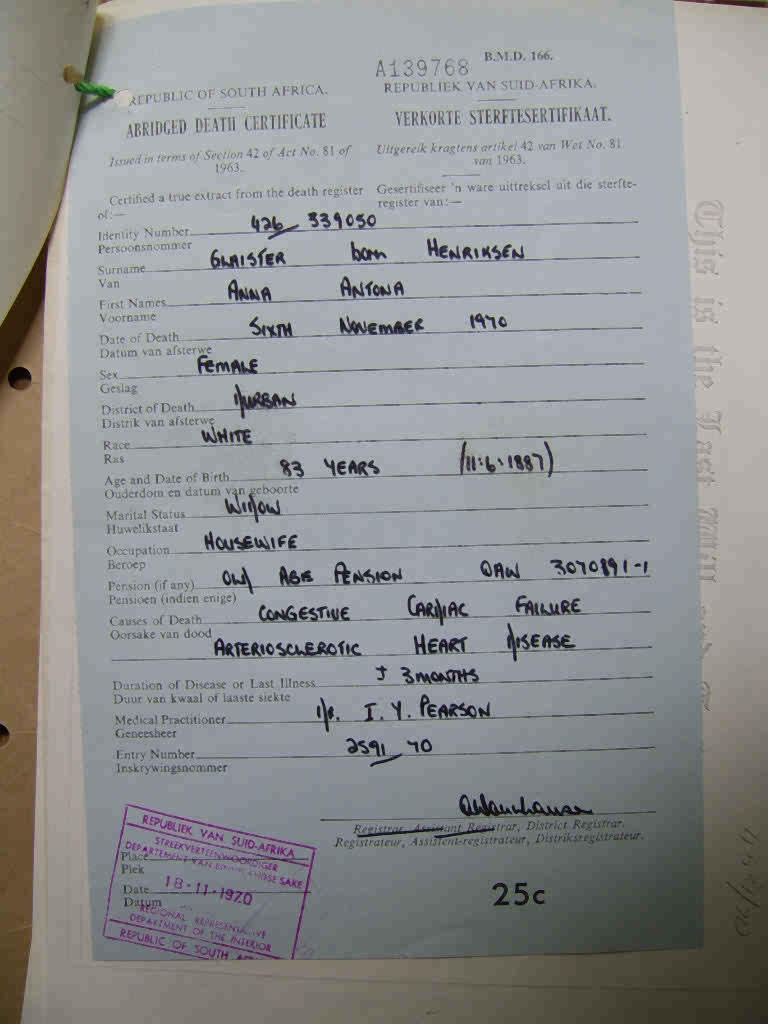 B.M.D. 166.
A139768
REPUBLIC OF SOUTH AFRICA. REPUBLIEK VAN SUID-AFRIKA.
ABRIDGED DEATH CERTIFICATE VERKORTE STERFTESERTIFIKAAT.
Issued in terms of Section 42 of Act No. 81 of 1963. Uitgereik kragtens artikel 42 van Wet No. 81 van 1963.
Certified a true extract from the death register of:— Gesertifiseer 'n ware uittreksel uit die sterfte-register van:—
Identity Number 426 339050
Persoonsnommer
Surname GLAISTER born HENRIKSEN
Van
First Names ANNA ANTONA
Voorname
Date of Death SIXTH NOVEMBER 1970
Datum van afsterwe
Sex FEMALE
Geslag
District of Death DURBAN
Distrik van afsterwe
Race WHITE
Ras
Age and Date of Birth 83 YEARS (11.6.1887)
Ouderdom en datum van geboorte
Marital Status WIDOW
Huwelikstaat
Occupation HOUSEWIFE
Beroep
Pension (if any) OLD AGE PENSION OAW 3070891-1
Pensioen (indien enige)
Causes of Death CONGESTIVE CARDIAC FAILURE
Oorsake van dood
ARTERIOSCLEROTIC HEART DISEASE
Duration of Disease or Last Illness ± 3 MONTHS
Duur van kwaal of laaste siekte
Medical Practitioner DR. I. Y. PEARSON
Geneesheer
Entry Number 2591 70
Inskrywingsnommer
Registrar, Assistant Registrar, District Registrar.
Registrateur, Assistent-registrateur, Distriksregistrateur.
REPUBLIEK VAN SUID-AFRIKA
STREEKVERTEENWOORDIGER
DEPARTEMENT VAN BINNELANDSE SAKE
Place
Plek
Date 18-11-1970
Datum
REGIONAL REPRESENTATIVE
DEPARTMENT OF THE INTERIOR
REPUBLIC OF SOUTH
25c
This is the Last Will